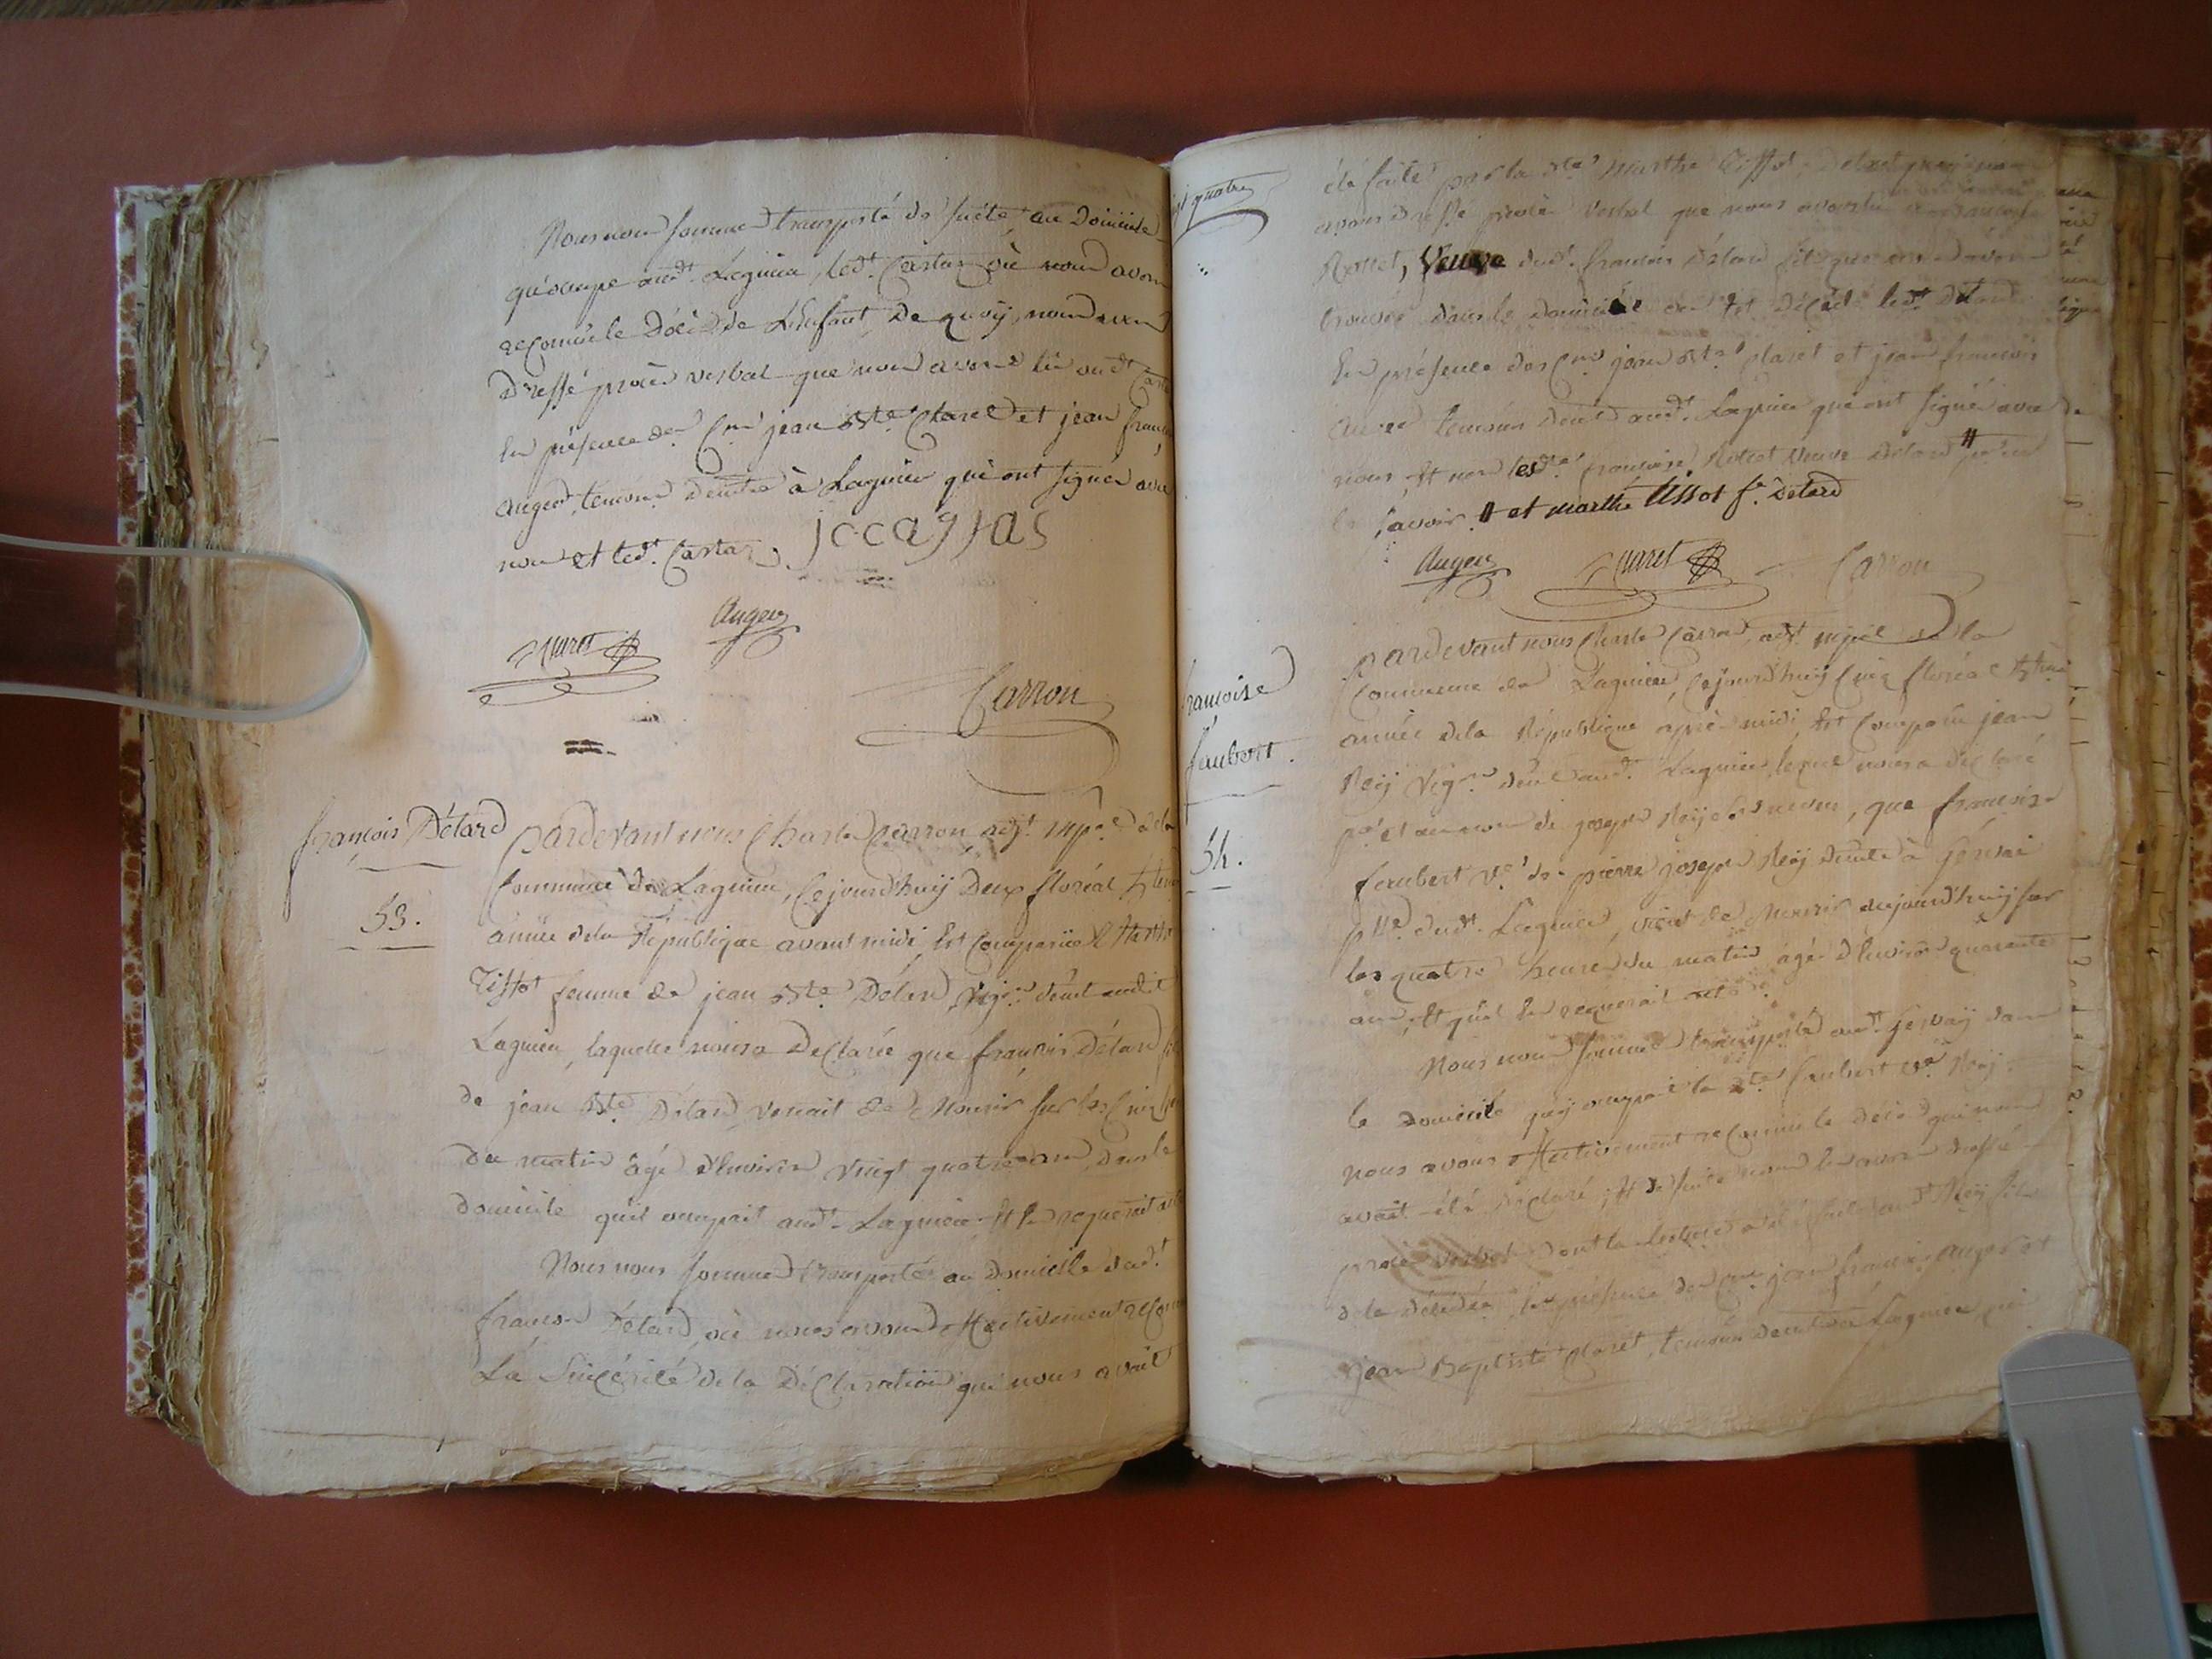 Nous nous sommes transporté de suite au Domicile
qu'occupe audt. Lagnieu, ledt. Castas où nous avons
reconnu le Décès de L'Enfant, De quoy, nous avons
Dressé procès verbal que nous avons lu audt
En présence des Cns jean Bte. Claret et jean
auger, temoins Demts à Lagnieu qui ont signés avec
nous et ledt. Castas. jccastas
Claret Auger
Carron
françois Détard
53.
Pardevant nous Charle Carron, agt. mpal de la
Commune de Lagnieu, Cejourd'huij Deux floréal
année de la République avant midi, Est Comparüe Marthe
Tissot femme de jean Bte. Détard, Vigron demt audit
Lagnieu, laquelle nous a Declarée que françois Détard
de jean Bte. Détard Venait de Mourir sur les Cinq
du matin âgé d'Environ Vingt quatre ans, dans le
domicile qu'il occupait audt. Lagnieu Et En requerait
Nous nous sommes transporté au Domicile dudt.
françois Détard, où nous avons Effectivement
La Sincérité de la Déclaration qui nous avait
quatre
été faite par la dte. Marthe Tissot,
avons dressé procès Verbal que nous avons lu
Rottet, Veuve dudt. françois Détard
trouvée dans le domicile où Est Décédé ledt. Détard
En présence des Cns jean Bte. Claret et jean françois
auger temoins demts audt. Lagnieu qui ont signés avec
nous, Et non lesdtes. françoise Rottet Veuve Détard #
savoir. # et marthe tissot fe. Détard
Auger Claret Carron
françoise
faubert.
54.
Pardevant nous Charle Carron, agt mpal de la
Commune de Lagnieu, Cejourd'huij Cinq floréal
année de la République après midi, Est Comparu jean
Reij Vigron demt audt. Lagnieu, lequel nous a declaré
et au nom de joseph Reij son neveu, que françoise
faubert Ve. de pierre joseph Reij demte à
dudt. Lagnieu, vient de Mourir aujourd'huij sur
les quatre heures du matin, âgée d'Environ quarante
ans, Et qu'il En requerait acte.
Nous nous sommes transporté audt. dans
le domicile qu'y occupait la dte. faubert Ve Reij.
nous avons Effectivement reconnu le décès qui nous
avait été déclaré, Et de suite nous En avons dressé
procès verbal dont la Lecture a été faite audt Reij fils
de la décédée, En présence des Cns jean françois auger et
jean Baptiste Claret, temoins demts à Lagnieu qui